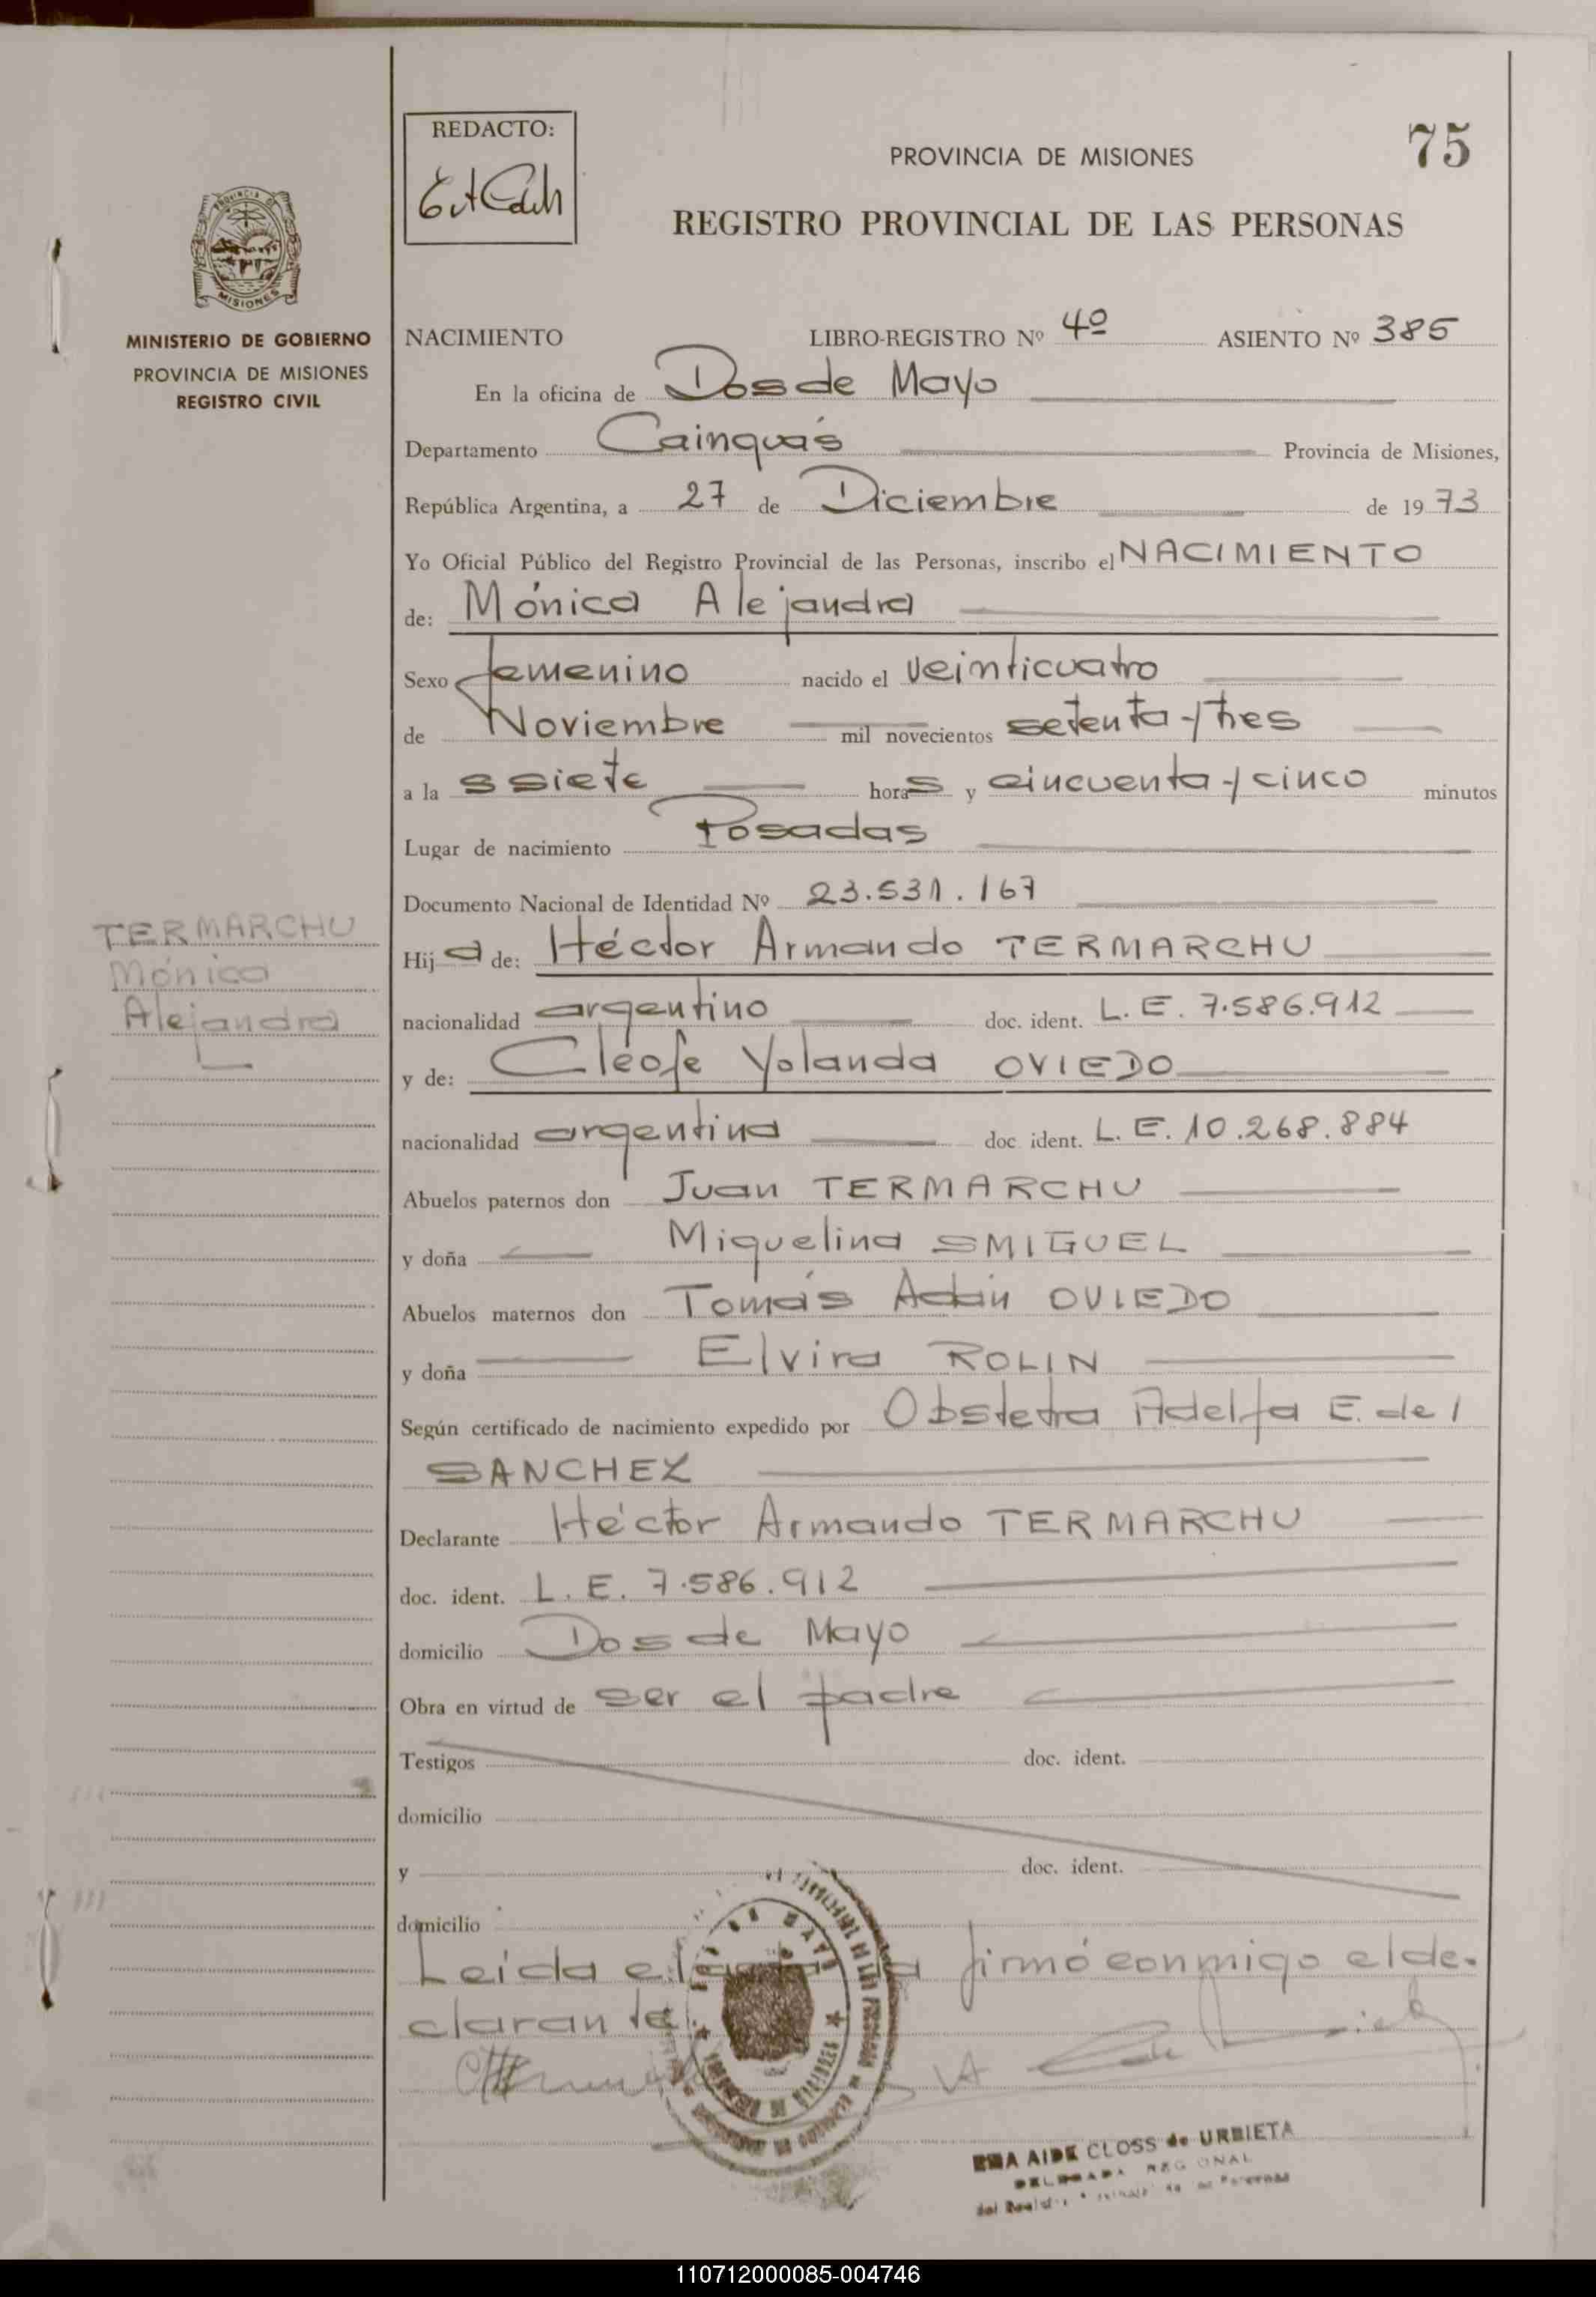 REDACTO:
75
PROVINCIA DE MISIONES
REGISTRO PROVINCIAL DE LAS PERSONAS
PROVINCIA DE
MISIONES
MINISTERIO DE GOBIERNO
PROVINCIA DE MISIONES
REGISTRO CIVIL
NACIMIENTO LIBRO-REGISTRO Nº 4º ASIENTO Nº 385
En la oficina de Dos de Mayo
Departamento Cainguás Provincia de Misiones,
República Argentina, a 27 de Diciembre de 1973
Yo Oficial Público del Registro Provincial de las Personas, inscribo el NACIMIENTO
de: Mónica Alejandra
Sexo femenino nacido el veinticuatro
de Noviembre mil novecientos setenta y tres
a la s siete horas y cincuenta y cinco minutos
Lugar de nacimiento Posadas
Documento Nacional de Identidad Nº 23.531.167
TERMARCHU
Mónica
Alejandra
Hija de: Héctor Armando TERMARCHU
nacionalidad argentino doc. ident. L. E. 7.586.912
y de: Cleofe Yolanda OVIEDO
nacionalidad argentina doc. ident. L. E. 10.268.884
Abuelos paternos don Juan TERMARCHU
y doña Miguelina SMIGUEL
Abuelos maternos don Tomás Adán OVIEDO
y doña Elvira ROLIN
Según certificado de nacimiento expedido por Obstetra Adelfa E. de
SANCHEZ
Declarante Héctor Armando TERMARCHU
doc. ident. L. E. 7.586.912
domicilio Dos de Mayo
Obra en virtud de ser el padre
Testigos doc. ident.
domicilio
y doc. ident.
domicilio
Leida el firmó conmigo el de-
clarante.
AIDE CLOSS de URBIETA
110712000085-004746